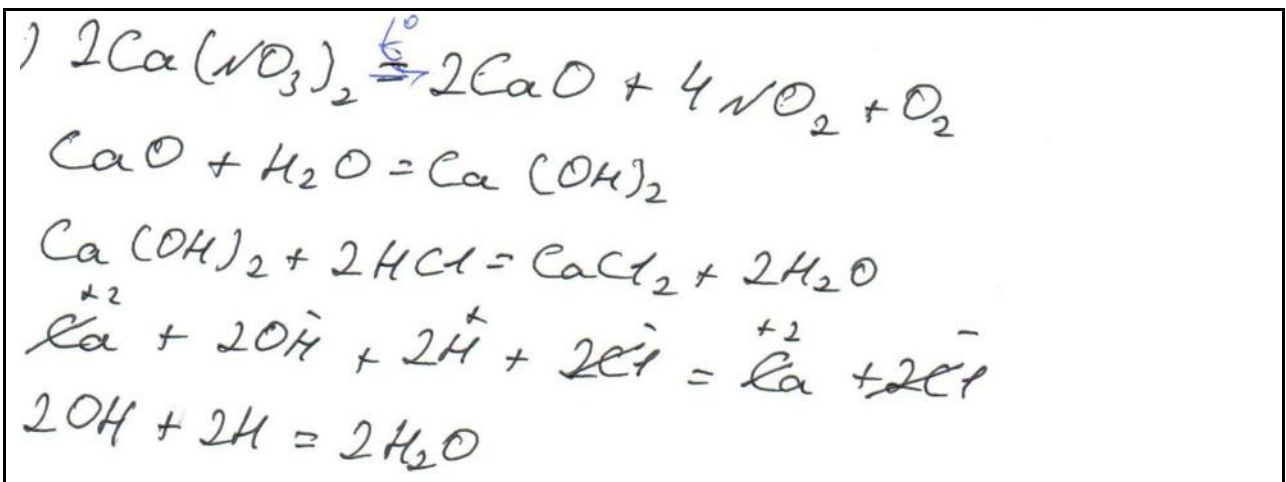 ) 2Ca(NO₃)₂ =t°→ 2CaO + 4NO₂ + O₂
CaO + H₂O = Ca(OH)₂
Ca(OH)₂ + 2HCl = CaCl₂ + 2H₂O
Ca⁺² + 2OH⁻ + 2H⁺ + 2Cl⁻ = Ca⁺² + 2Cl⁻
2OH + 2H = 2H₂O